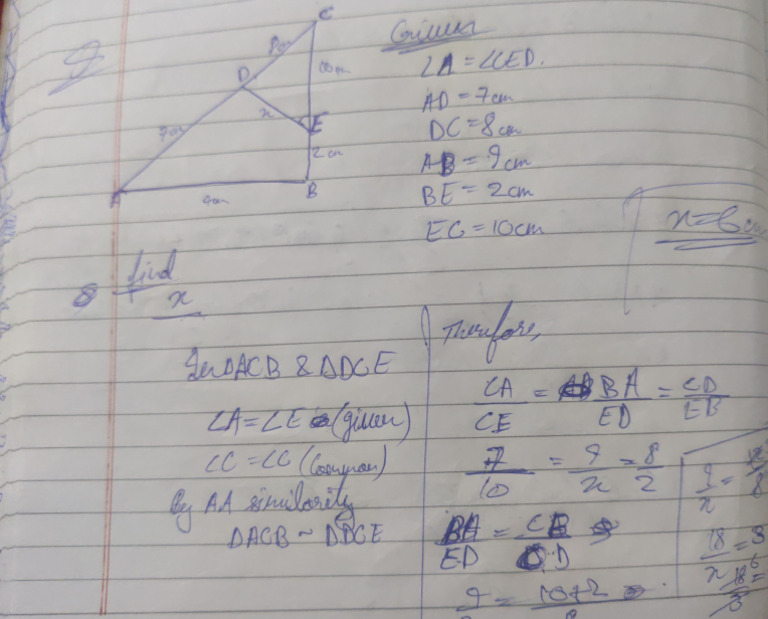 Q
C
8cm
10cm
D
x
E
7cm
2cm
A
9cm
B
Given
∠A = ∠CED.
AD = 7cm
DC = 8cm
AB = 9cm
BE = 2cm
EC = 10cm
x = 6cm
find
x
In ΔACB & ΔDCE
∠A = ∠E (given)
∠C = ∠C (Common)
By AA similarity
ΔACB ~ ΔDCE
Therefore,
CA/CE = BA/ED = CD/EB
7/10 = 9/x = 8/2
BA/ED = CB/CD
9 = 10+2
9/x = 12/8
18/x = 3
18/3 6 =